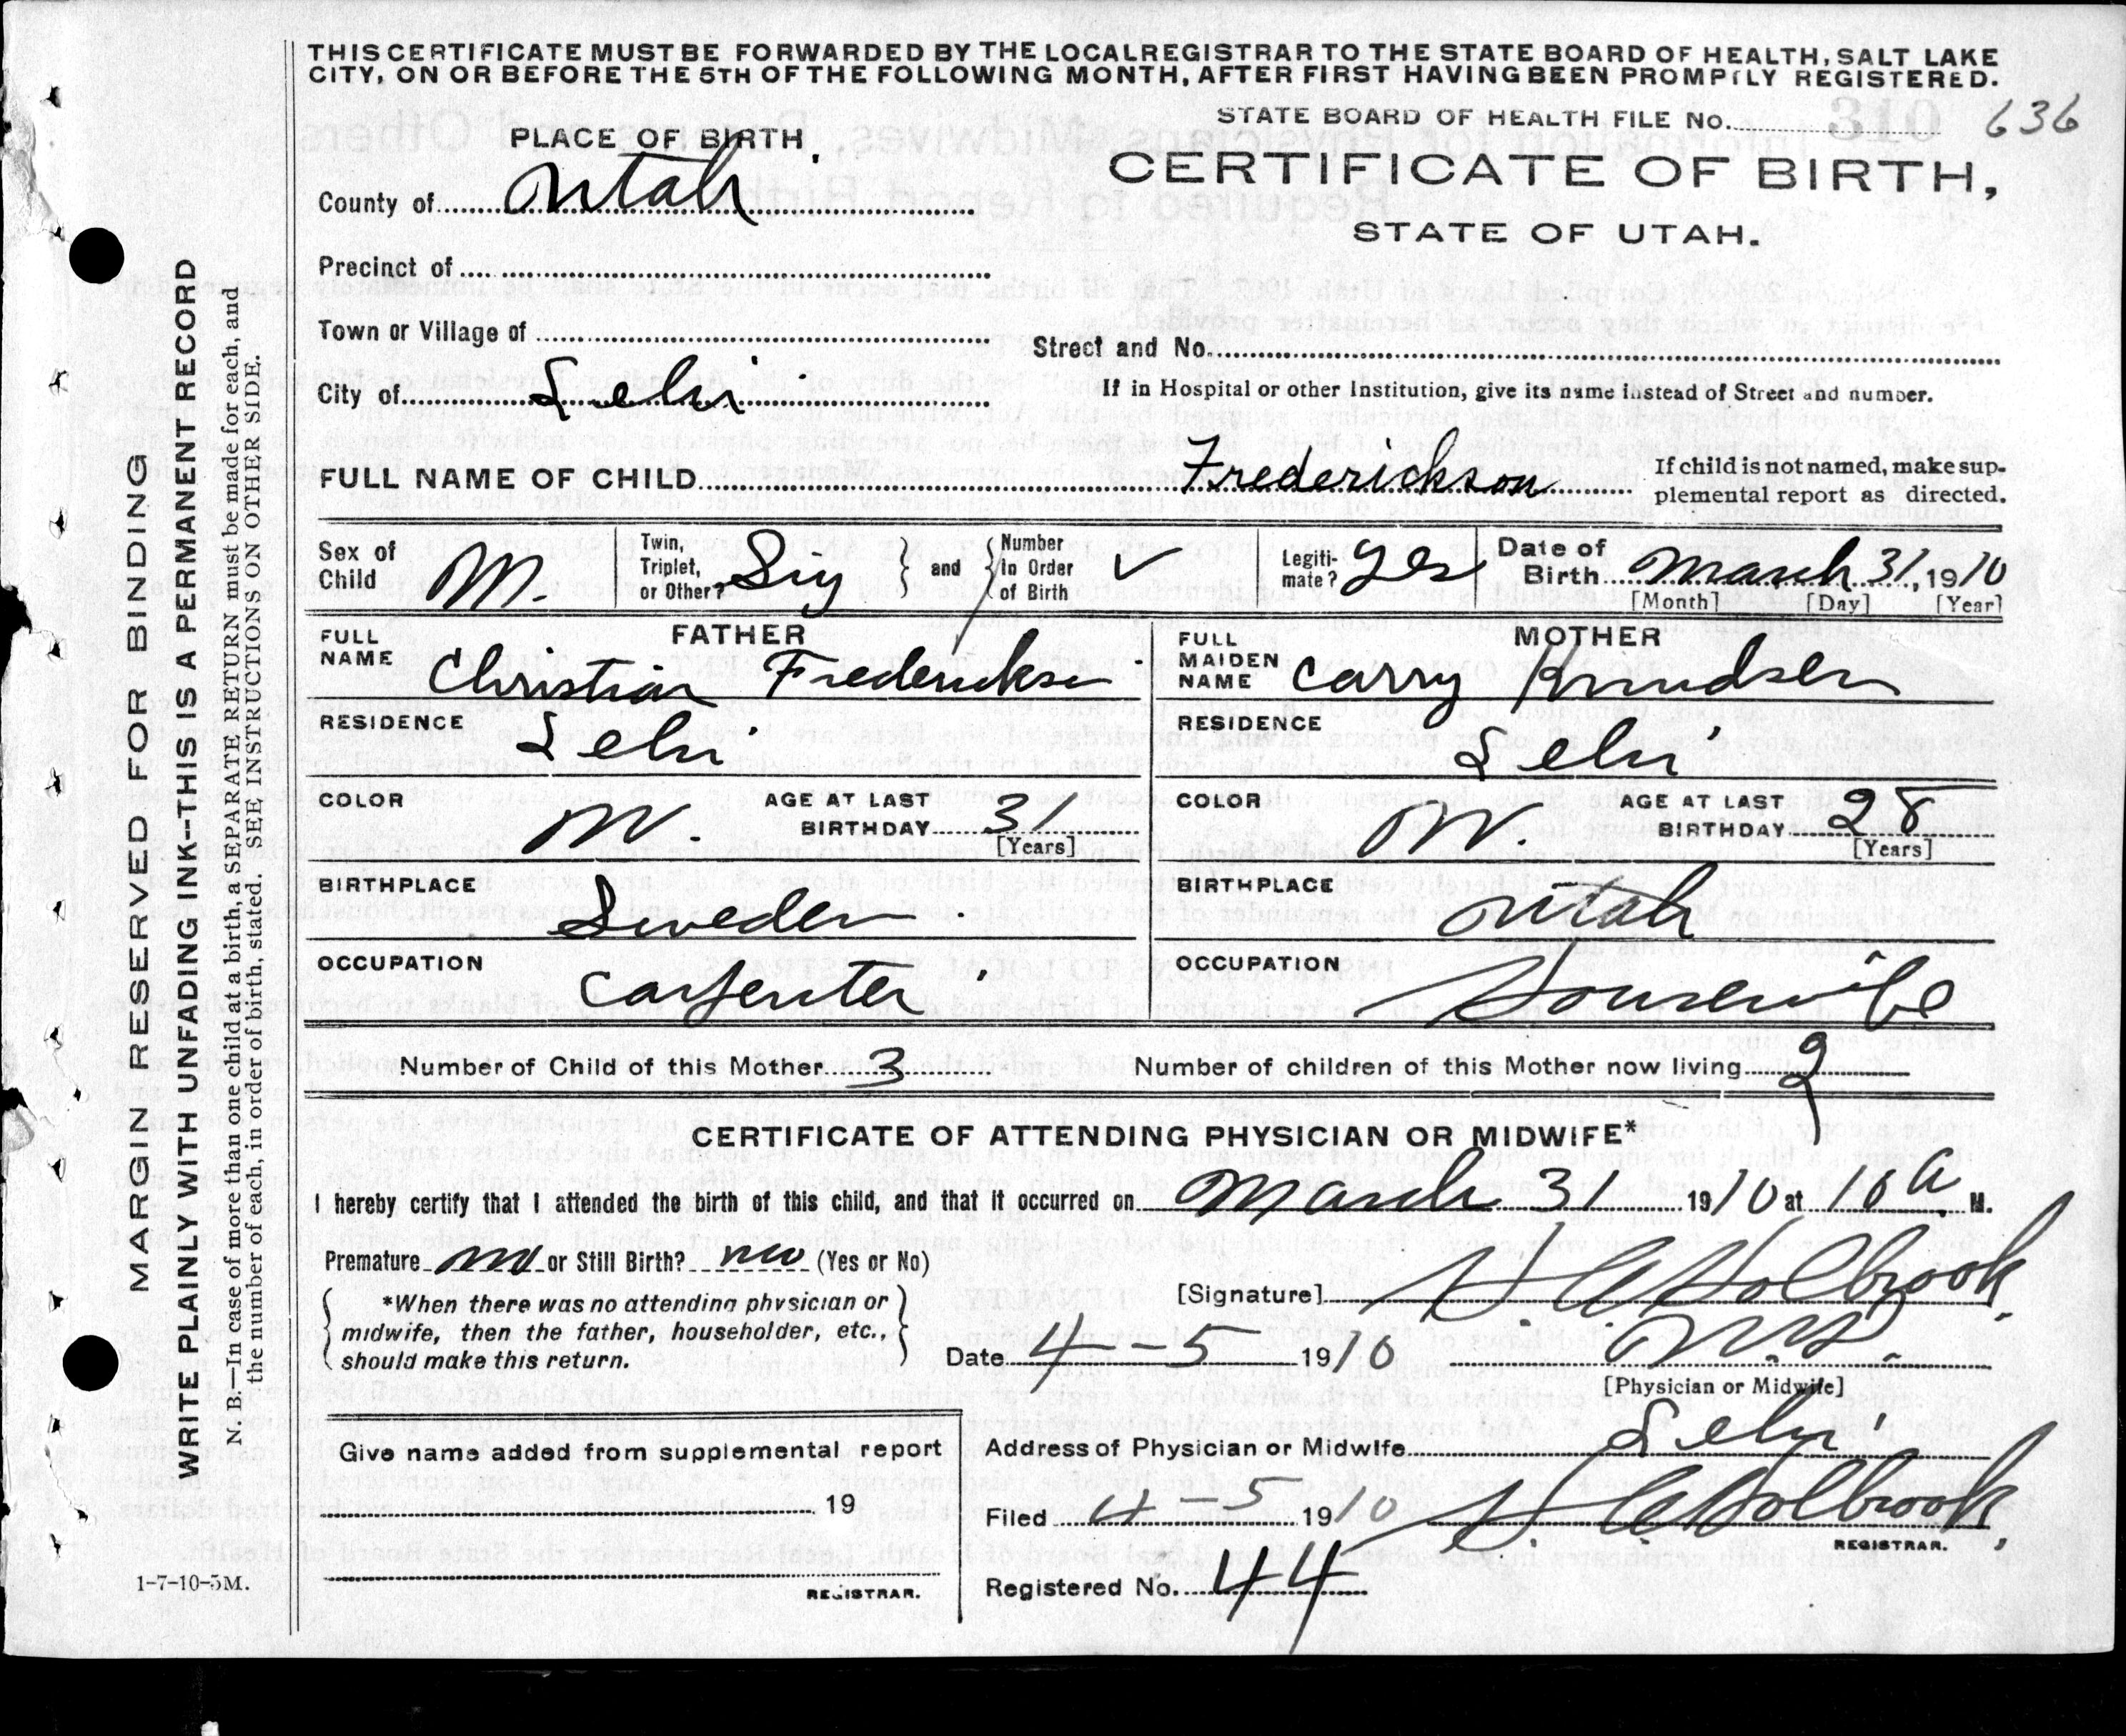 THIS CERTIFICATE MUST BE FORWARDED BY THE LOCAL REGISTRAR TO THE STATE BOARD OF HEALTH, SALT LAKE
CITY, ON OR BEFORE THE 5TH OF THE FOLLOWING MONTH, AFTER FIRST HAVING BEEN PROMPTLY REGISTERED.
STATE BOARD OF HEALTH FILE No. 310 636
PLACE OF BIRTH,
CERTIFICATE OF BIRTH,
STATE OF UTAH.
County of Utah
Precinct of
Town or Village of
Street and No.
City of Lehi
If in Hospital or other Institution, give its name instead of Street and number.
FULL NAME OF CHILD Frederickson
If child is not named, make sup-
plemental report as directed.
Sex of Child M.
Twin, Triplet, or Other? Sig
and
Number In Order of Birth ✓
Legiti-mate? yes
Date of Birth March 31, 1910
[Month] [Day] [Year]
FATHER
FULL NAME Christian Frederickson
RESIDENCE Lehi
COLOR W. AGE AT LAST BIRTHDAY 31
[Years]
BIRTHPLACE Sweden.
OCCUPATION Carpenter
MOTHER
FULL MAIDEN NAME Carry Knudsen
RESIDENCE Lehi
COLOR W. AGE AT LAST BIRTHDAY 28
[Years]
BIRTHPLACE Utah
OCCUPATION Housewife
Number of Child of this Mother 3 Number of children of this Mother now living 2
CERTIFICATE OF ATTENDING PHYSICIAN OR MIDWIFE*
I hereby certify that I attended the birth of this child, and that it occurred on March 31 1910 at 10 A M.
Premature no or Still Birth? no (Yes or No)
*When there was no attending physician or
midwife, then the father, householder, etc.,
should make this return.
[Signature] H. C. Holbrook,
Date 4-5 1910 M.D.
[Physician or Midwife]
Give name added from supplemental report
19
REGISTRAR.
Address of Physician or Midwife Lehi
Filed 4-5 1910 H. C. Holbrook,
REGISTRAR.
Registered No. 44
MARGIN RESERVED FOR BINDING
WRITE PLAINLY WITH UNFADING INK--THIS IS A PERMANENT RECORD
N. B.—In case of more than one child at a birth, a SEPARATE RETURN must be made for each, and
the number of each, in order of birth, stated. SEE INSTRUCTIONS ON OTHER SIDE.
1-7-10-5M.